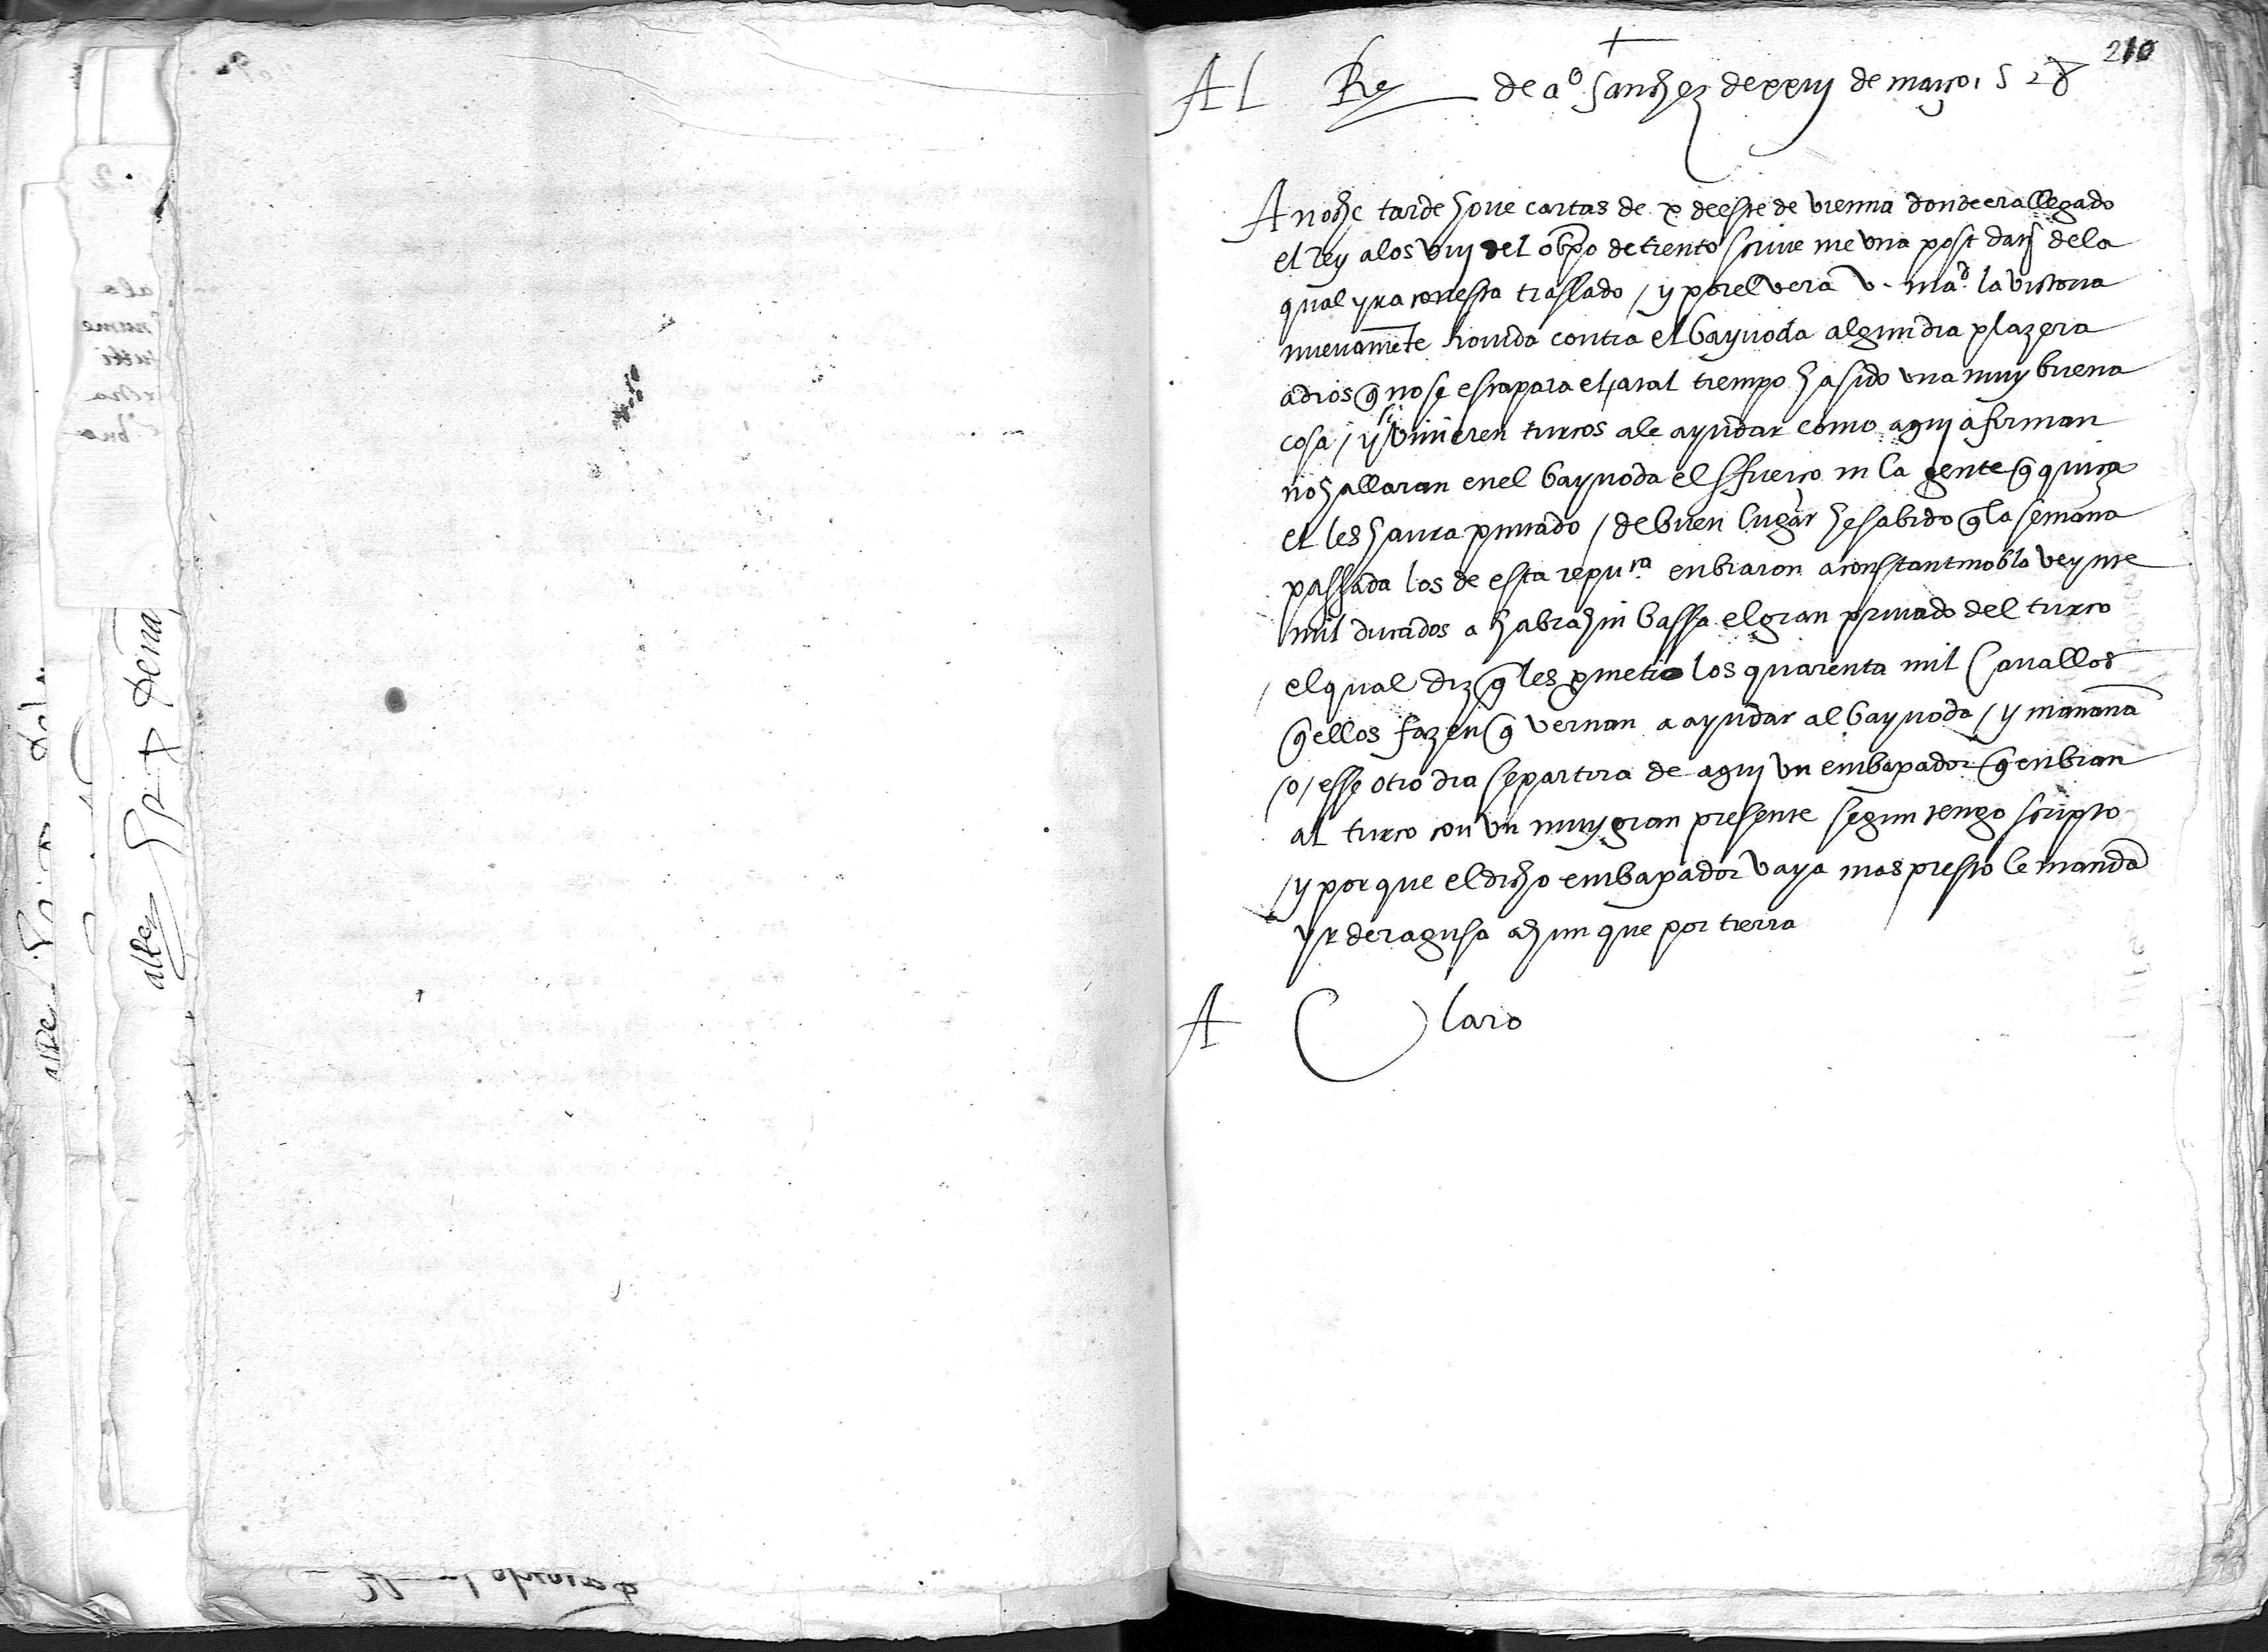 210
+
Al Rey de aº sanchez de xxiij de março 1528
Anoche tarde hove cartas de x deeste de vienna donde era llegado
el rey alos viij del obpo de trento scrive me una post dat de la
qual yra conesta traslado / y por el vera v. mad. la victoria
nuevamēte hovida contra el bayuoda algun dia plazera
a dios q no se escapara el, aral tiempo ha sido una muy buena
cosa / y si vinieren turcos ale ayudar como aquj afirman
no hallaran enel bayuoda el sfuerço ni la gente q quiça
el les haura pintado / de buen lugar he sabido q la semana
passada los de esta repu.ca enbiaron a constantinobla veynte
mil ducados a habrahin bassa el gran privado del turco
el qual diz q les pmetio los quarenta mil Cavallos
q ellos fazen q vernan a ayudar al bayuoda / y manana
/o/ esse otro dia se partira de aquj un embaxador q enbian
al turco con un muy gran presente segun tengo scripto
/ y por que el dicho embaxador vaya mas presto le mandā
yr de ragusa ahun que por tierra
A Claro